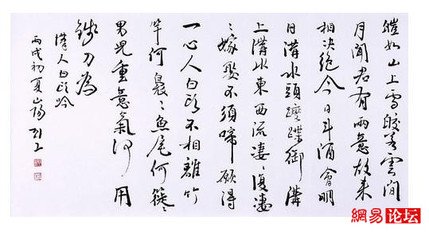 皚如山上雪皎若雲間
月聞君有兩意故來
相決絕今日斗酒會明
旦溝水頭躞蹀御溝
上溝水東西流淒々復淒
々嫁娶不須啼願得
一心人白頭不相離竹
竿何裊々魚尾何簁々
男兒重意氣何用
錢刀為
漢人白頭吟
丙戌初夏
網易论坛